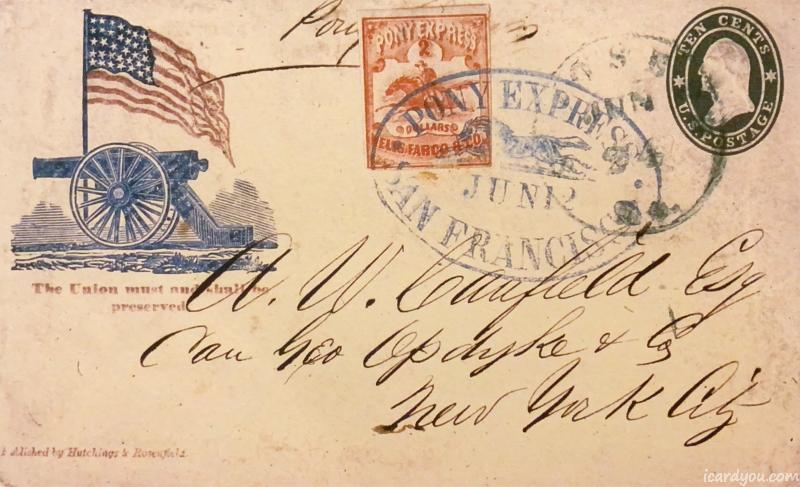 Pony Express
PONY EXPRESS
2
DOLLARS
WELLS FARGO & CO.
TEN CENTS
U.S. POSTAGE
PONY EXPRESS
JUN 12
SAN FRANCISCO
The Union must and shall be
preserved
A. W. Canfield Esq
Care Geo Opdyke & Co
New York City
Published by Hutchings & Rosenfield.
icardyou.com